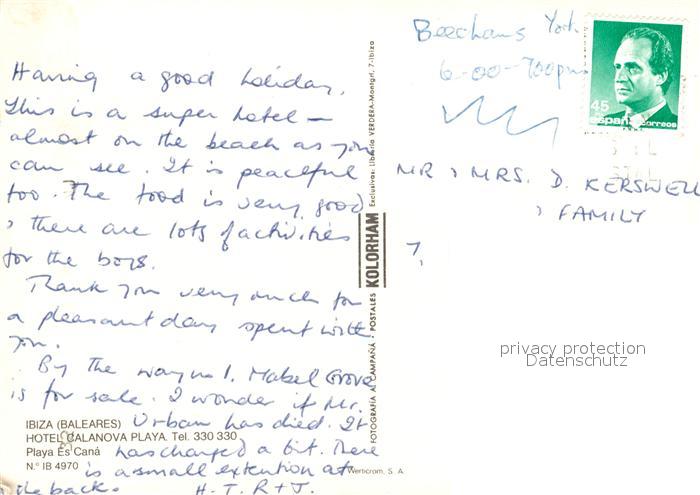 Having a good holiday.
This is a super hotel —
almost on the beach as you
can see. It is peaceful
too. The food is very good
, there are lots of activities
for the boys.
Thank you very much for
a pleasant day spent with
you.
By the way no 1. Mabel Grove
is for sale. I wonder if Mr.
Urban has died. It
has changed a bit. There
is a small extention at
the back.
H. T. R + J.
IBIZA (BALEARES)
HOTEL CALANOVA PLAYA. Tel. 330 330
Playa Es Caná
N.º IB 4970
FOTOGRAFIA AL CAMPAÑA · POSTALES KOLORHAM Exclusivas: Librería VERDERA-Montgrí, 7-Ibiza
Verticrom, S. A.
Beechams York.
6-00-7.00pm
45
españa correos
MR , MRS. D. KERSWELL
, FAMILY
7,
privacy protection
Datenschutz